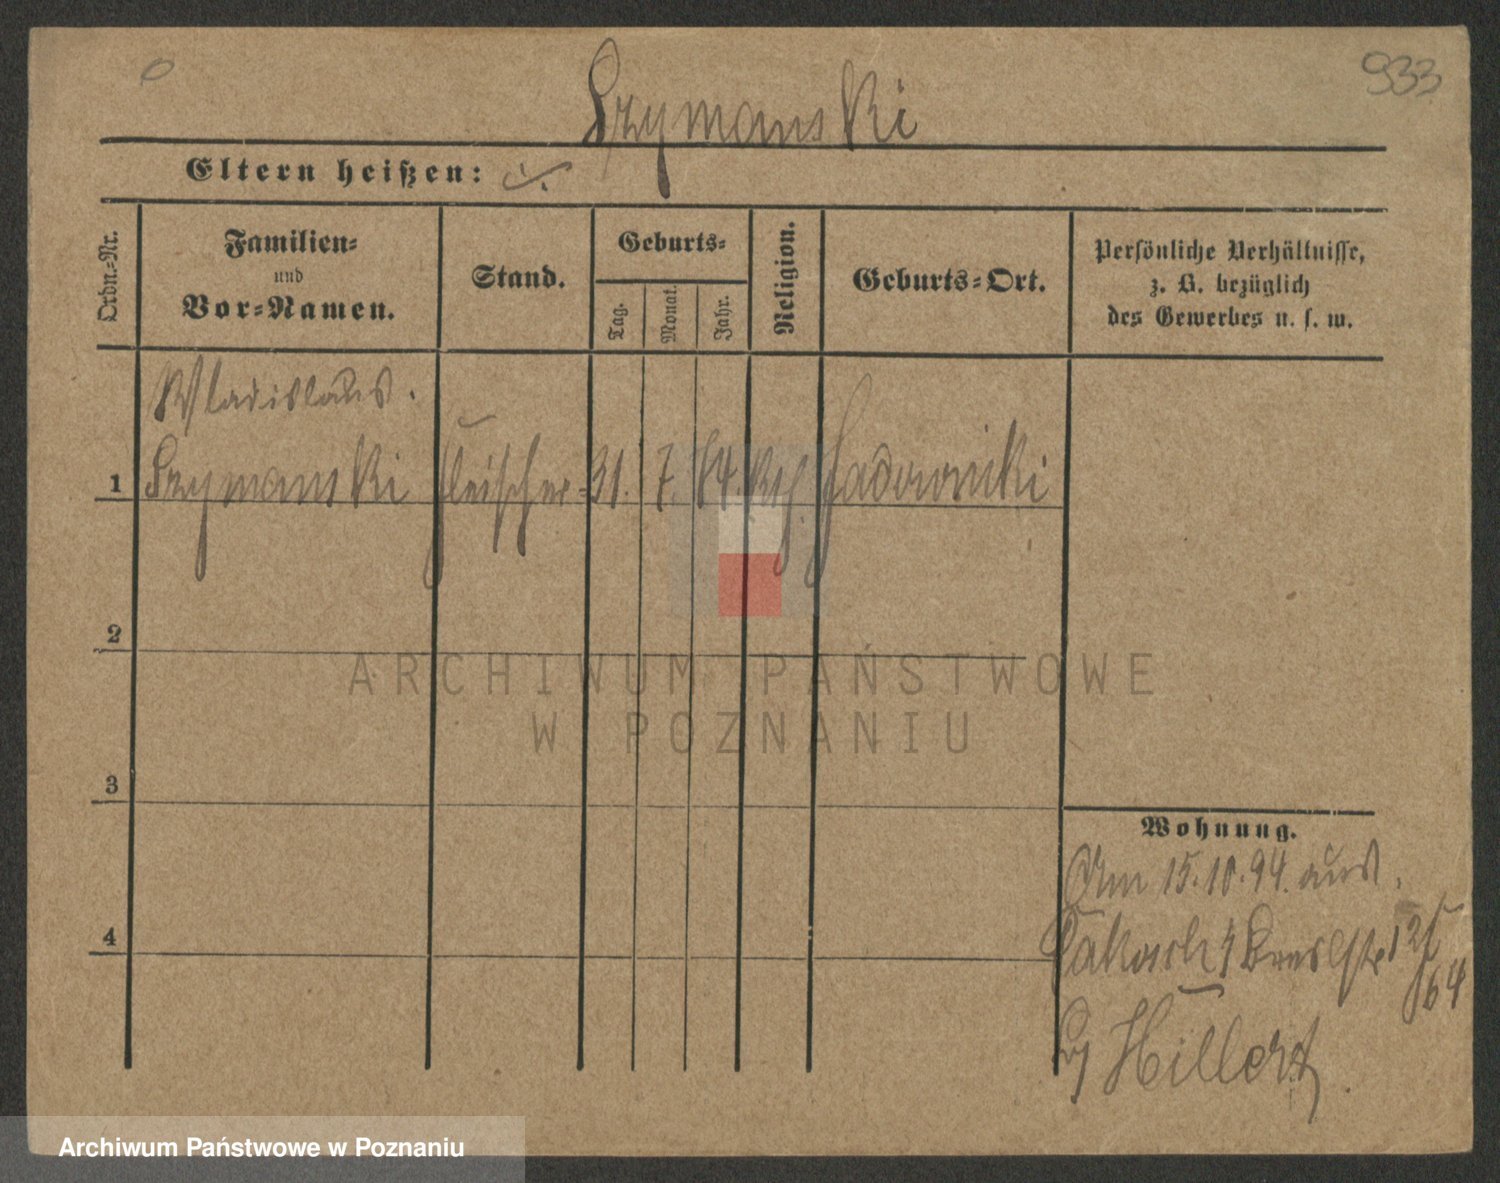 933
Szymanski
Eltern heißen: ./.
Ordn.-Nr.
Familien-
und
Vor-Namen.
Stand.
Geburts-
Tag.
Monat.
Jahr.
Religion.
Geburts-Ort.
Persönliche Verhältnisse,
z. B. bezüglich
des Gewerbes u. s. w.
Wladislaus.
1 Szymanski Fleischer 31. 7. 74. kth.
2
3
4
Wohnung.
Am 15.10.94. aus
Breslstr
Hillert
ARCHIWUM PAŃSTWOWE
W POZNANIU
Archiwum Państwowe w Poznaniu